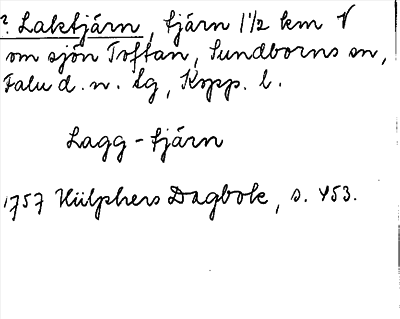 ? Laktjärn, tjärn 1 1/2 km V
om sjön Toftan, Sundborns sn,
Falu d. n. lg, Kopp. l.
Lagg-tjärn
1757 Hülphers Dagbok, s. 453.